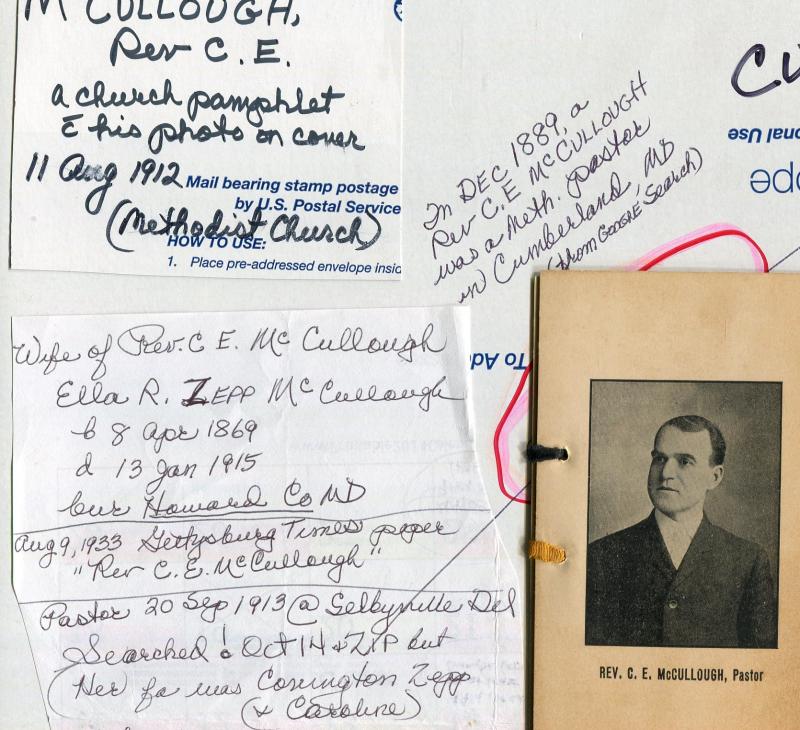 McCULLOUGH,
Rev C. E.
a church pamphlet
c̄ his photo on cover
11 Aug 1912
Mail bearing stamp postage
by U.S. Postal Service
(Methodist Church)
HOW TO USE:
1. Place pre-addressed envelope insid
In DEC 1889, a
Rev C.E McCULLOUGH
was a Meth. pastor
in Cumberland, MD
(from GOOGLE Search)
CU
onal Use
ope
To Add
Wife of Rev. C E. McCullough
Ella R. ZEPP McCullough
b 8 Apr 1869
d 13 Jan 1915
bur Howard Co MD
Aug 9, 1933 Gettysburg Times paper
"Rev C.E. McCullough"
Pastor 20 Sep 1913 @ Selbyville Del
Searched Oct 14 ZIP but
(Her fa was Convington Zepp
(& Caroline)
REV. C. E. McCULLOUGH, Pastor